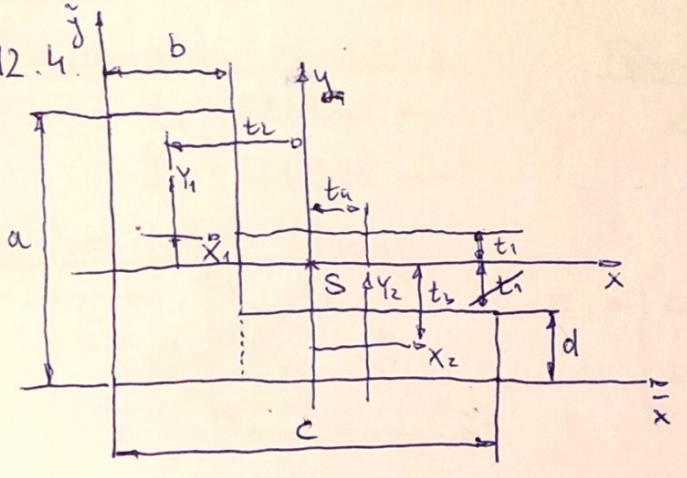 12.4.
ỹ
b
y
t₂
Y₁
t₄
a
X₁
t₁
x
S
Y₂
t₃
t₁
X₂
d
x̄
c